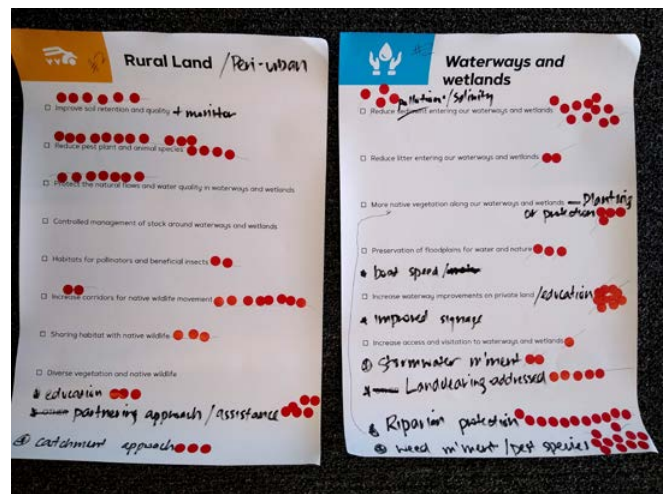 Rural Land / Peri-urban
Improve soil retention and quality + monitor
Reduce pest plant and animal species
Protect the natural flows and water quality in waterways and wetlands
Controlled management of stock around waterways and wetlands
Habitats for pollinators and beneficial insects
Increase corridors for native wildlife movement
Sharing habitat with native wildlife
Diverse vegetation and native wildlife
education
partnering approach / assistance
catchment approach
Waterways and
wetlands
pollution / salinity
Reduce sediment entering our waterways and wetlands
Reduce litter entering our waterways and wetlands
More native vegetation along our waterways and wetlands — Planting
or protection
Preservation of floodplains for water and nature
boat speed /
Increase waterway improvements on private land / education
improved signage
Increase access and visitation to waterways and wetlands
Stormwater m'ment
Landclearing addressed
Riparian protection
weed m'ment / pest species